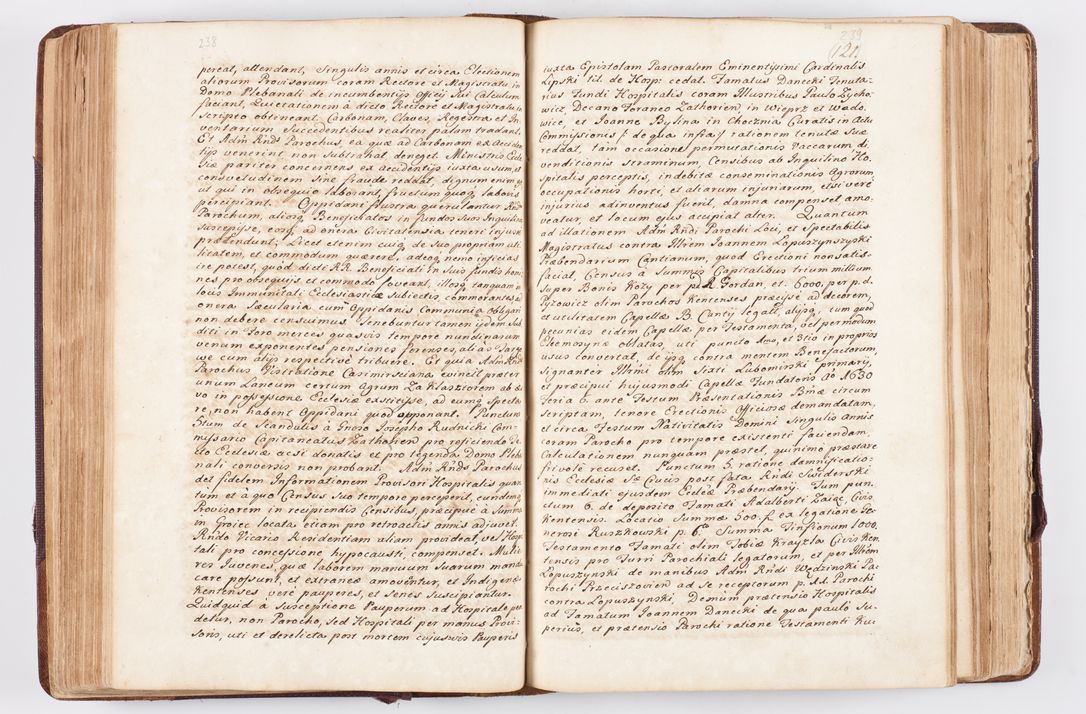 238
pereat, attendant, singulis annis et circa Electionem
aliorum Provisorum coram Rectore et Magistratu in
Domo Plebanali de incumbentijs officij sui Calculum
faciant, Quietationem à dicto Rectore et Magistratu in
Scripto obtineant, Carbonam, Claves, Regestra et In-
ventarium Succedentibus realiter palam tradant.
Et Adm Rnds Parochus, ea quæ ad Carbonam ex Acciden
tijs venerint, non subtrahat, deneget. Ministrio Eccle
siæ pariter concernens ex Accidentijs iuxta usum et
consvetudinem sine fraude reddat, dignum enim est
ut qui in obsequijs laborant, fructum quoq laboris
percipiant. Oppidani frustra queruntur Rnd
Parochum, aliosq Beneficiatos in fundos suos Inquilinos
suscepisse, eosq ad onera Civitatensia teneri injuste
prætendunt; Licet etenim cuiq de suo propriam uti
litatem, et commodum quærere, adeoq nemo inficias
ire potest, quòd dicti RR Beneficiati in suis fundis homi
nes pro obsequijs et commodo foveant, illosq tanquam in
locis Immunitati Ecclesiasticæ subiectis commorantes, ad
onera Sæcularia cum Oppidanis Communia obligari
non debere censuimus. Tenebuntur tamen ijdem Sub
diti in Foro merces quasvis tempore nundinarum
venum exponentes pensiones forenses, aliàs Targo
we cum alijs respectivè tribuere. Et quia Adm Rnds
Parochus Visitatione Casimirsciana evincit præter
unum Laneum certum Agrum Za Klasztorem ab æ
vo in possessione Ecclesiæ exstitisse, ad eumq specta
re, non habent Oppidani quod opponant. Punctum
3tium de Scandulis à Gnoso Josepho Rudnicki Com-
missario Capitaneatus Zathorien pro reficiendo te
cto Ecclesiæ acsi donatis et pro tegenda Domo Pleba
nali conversis non probant. Adm Rnds Parochus
det fidelem Informationem Provisori Hospitalis quan
tum et à quo Census suo tempore perceperit, eundemq
Provisorem in recipiendis Censibus, præcipuè à Summa
in Groiec locata etiam pro retroactis annis adjuvet.
Rndo Vicario Residentiam aliam provideat, vel Hospi
tali pro concessione hypocausti, compenset. Mulie
res Juvenes, quæ laborem manuum suarum mandu
care possunt, et extraneæ amoveantur, et Indigenæ
Kentenses verè pauperes, et senes suscipiantur.
Quidquid à susceptione Pauperum ad Hospitale pen
detur, non Parocho, sed Hospitali per manus Provi-
soris, uti et derelicta post mortem cujusvis Pauperis
239
121
iuxta Epistolam Pastoralem Eminentissimi Cardinalis
Lipski tit. de Hosp: cedat. Famatus Danecki Tenuta-
rius Fundi Hospitalis coram Illustribus Paulo Zycho-
wicz, Decano Foraneo Zathorien, in Wieprz et Wado-
wice, et Joanne Bylina in Chocznia Curatis in Actu
Commissionis /: de qua infra :/ rationem tenutæ suæ
reddat, tam occasione permutationis Vaccarum di-
venditionis straminum, Censibus ab Inquilino Ho-
spitalis perceptis, indebitæ conseminationis Agrorum,
occupationis horti, et aliarum injuriarum, etsi verè
injurius adinventus fuerit, damna compenset amo-
veatur, et locum ejus accupiat alter. Quantum
ad illationem Adm Rndi Parochi Loci, et Spectabilis
Magistratus contra Illrem Joannem Lopuszynszyski
Præbendarium Cantianum, quod Erectioni non satis-
faciat, Census à Summis Capitalibus trium millium
super Bonis Kozy per p. d. Jordan, et. 6000. per p. d.
Pyzowicz olim Parochos Kentenses præcisè ad decorem,
et utilitatem Capellæ B. Cantij legat, alijsq tum quod
pecunias eidem Capellæ per Testamenta, vel per modum
Eleemosynæ oblatas, uti puncto 2mo, et 3tio in proprios
usus convertat, de ijsq contra mentem Benefactorum,
signanter Illrmi olim Sixti Lubomirski primarij,
et præcipui hujusmodi Capellæ Fundatoris Aõ 1630
Feria 6 ante Festum Præsentationis Bmæ circum
scriptam, tenore Erectionis Officiosæ demandatam,
et circa Festum Nativitatis Domini singulis annis
coram Parocho pro tempore existenti faciendam,
Calculationem nunquam præstet, quinimò præstare
frivolè recuset. Punctum 5. ratione damnificatio-
nis Ecclesiæ Sæ Crucis post fata Rndi Swiderski
immediati ejusdem Eccliæ Præbendarij. Tum pun-
ctum 6. de deposito Famati Adalberti Zaiąc, Civis
Kentensis. Locatio Summæ 500. f. ex legatione Ge-
nerosi Ruszkowski p. 6to Summa Tinfionum 1000.
Testamento Famati olim Tobiæ Krayzla Civis Ken-
tensis pro Turri Parochiali legatorum, et per Illrem
Lopuszynski de manibus Adm Rndi Wędzinski Pa-
rochi Przeciszovien ad se receptorum p. d. d. Parochi
contra Lopuszynski. Demùm prætensio Hospitalis
ad Famatum Joannem Danecki de qua paulò su-
periùs, et prætensio Parochi ratione Testamenti Hui